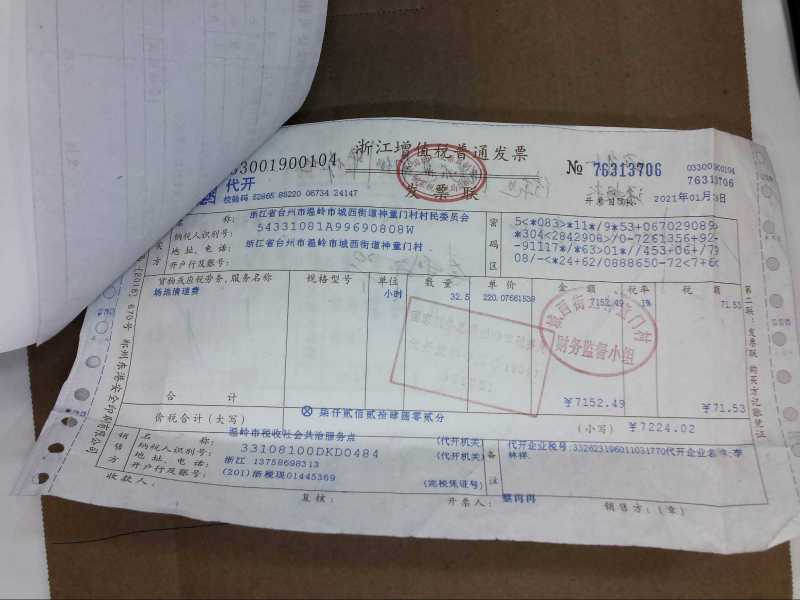 033001900104
浙江增值税普通发票
发票联
№ 76313706
033001900104
76313706
代开
校验码 52865 85220 06734 24147
开票日期: 2021年01月
名 称: 浙江省台州市温岭市城西街道神童门村村民委员会
纳税人识别号: 54331081A99690808W
地址、电话: 浙江省台州市温岭市城西街道神童门村
开户行及账号:
密码区
5<*083>*11*/9*53+067029089
*304<2842908>/0-7261356+92-
-91117*/*63>01*//453+06+/7
08/-<*24+62/0888650-72<7+6
货物或应税劳务、服务名称 规格型号 单位 数量 单价 金额 税率 税额
场地清理费 小时 32.5 220.07661538 7152.49 1% 71.53
城西街道神童门村
财务监督小组
合计 ¥7152.49 ¥71.53
价税合计(大写) ⊗ 柒仟贰佰贰拾肆圆零贰分 (小写) ¥7224.02
销售方
名 称: 温岭市税收社会共治服务点 (代开机关)
纳税人识别号: 33108100DKD0484 (代开机关)
地址、电话: 浙江 13758698313
开户行及账号: (201)浙税现01445369 (完税凭证号)
备注
代开企业税号:332623196011031770代开企业名称:李
林祥.
收款人:
复核:
开票人: 蔡冉冉
销售方:(章)
第二联:发票联 购买方记账凭证